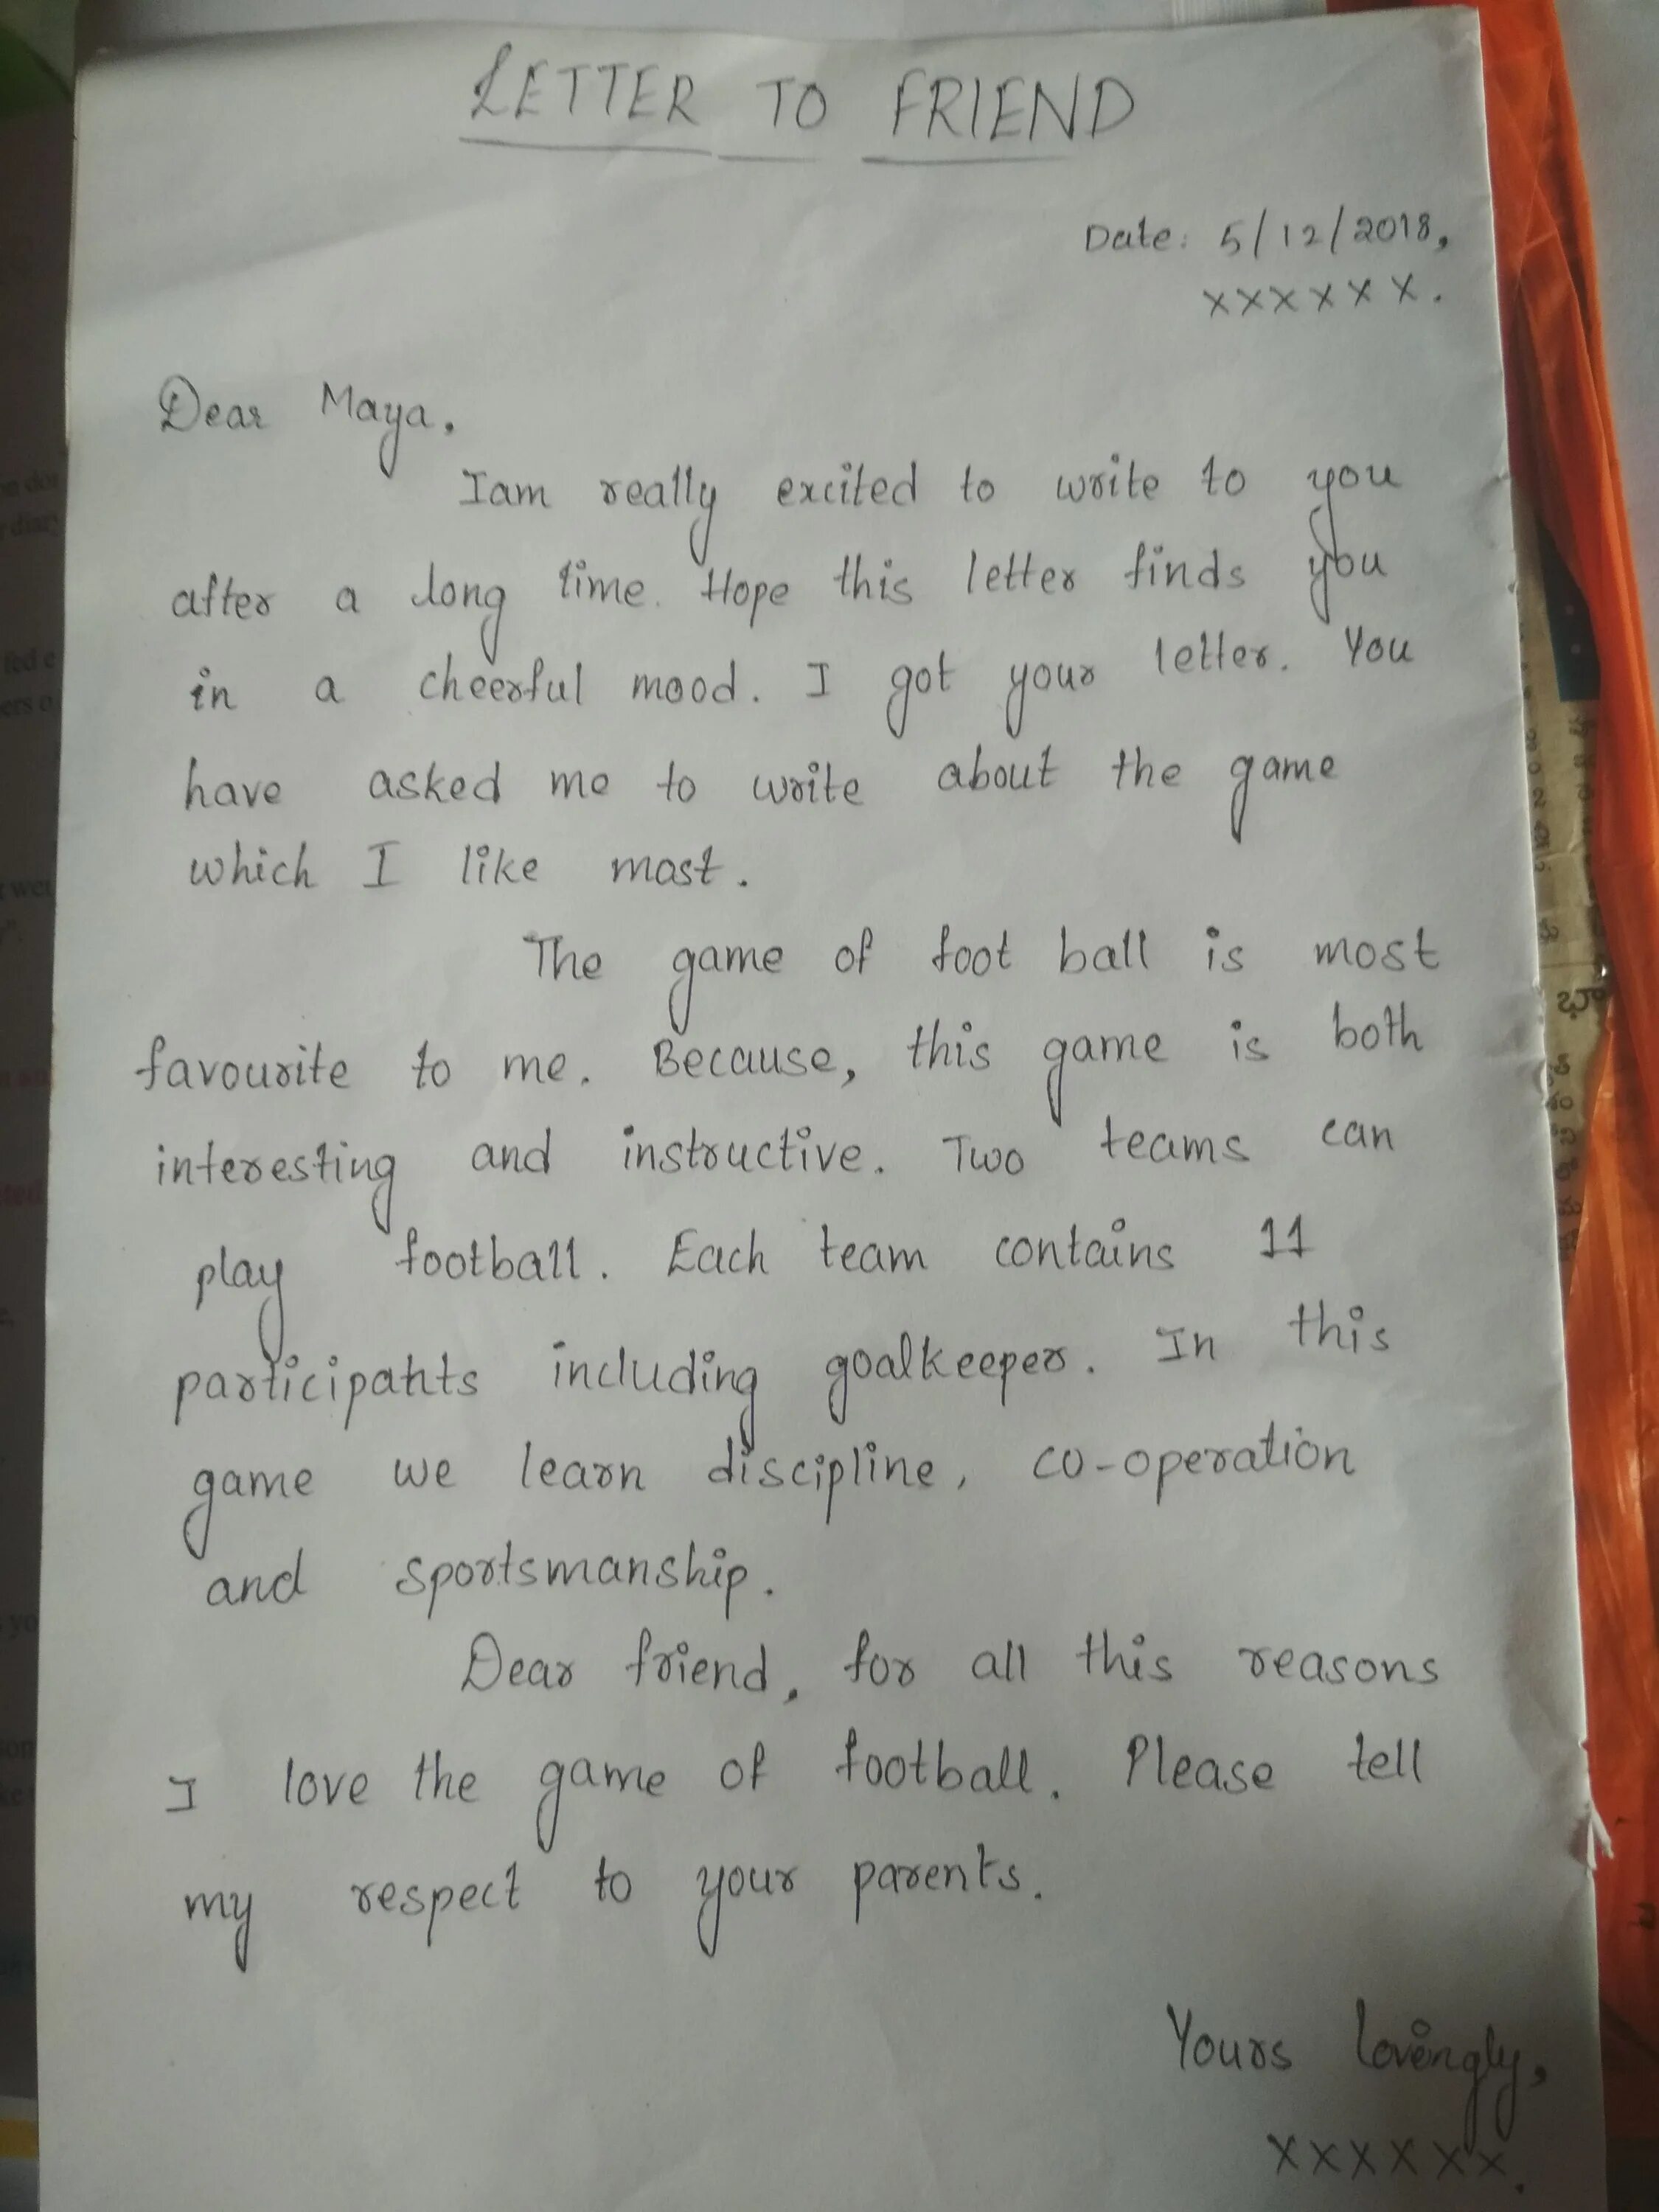 LETTER TO FRIEND
Date: 5/12/2018,
xxxxxx.
Dear Maya,
Iam really excited to write to you
after a long time. Hope this letter finds you
in a cheerful mood. I got your letter. You
have asked me to write about the game
which I like most.
The game of foot ball is most
favourite to me. Because, this game is both
interesting and instructive. Two teams can
play football. Each team contains 11
participants including goalkeeper. In this
game we learn discipline, co-operation
and sportsmanship.
Dear friend, for all this reasons
I love the game of football. Please tell
my respect to your parents.
Yours lovingly,
xxxxxx.